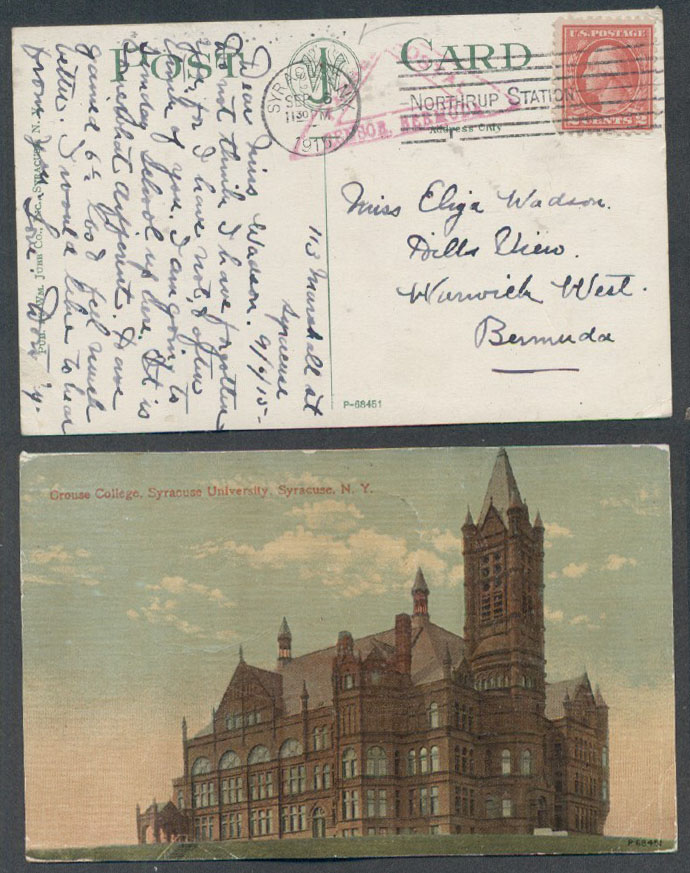 POST CARD
J
SYRACUSE, N.Y.
SEP
1130 PM
1915
NORTHRUP STATION
POSTAL
CENSOR, BERMUDA
Address Only
U.S. POSTAGE
2 CENTS 2
Miss Eliza Wadson.
Dills View.
Warwick West.
Bermuda
P-68451
PUB. BY WM. JUBB CO., INC., SYRACUSE, N.Y.
113 Marshall st
Syracuse
9/6/15-
Dear Miss Wadson.
Do not think I have forgotten
you, for I have not, & often
think of you. I am going to
Sunday School up here. It is
somewhat different. Have
gained 6 lbs & feel much
better. I would like to hear
from you. Love.
Crouse College, Syracuse University, Syracuse, N. Y.
P 68451